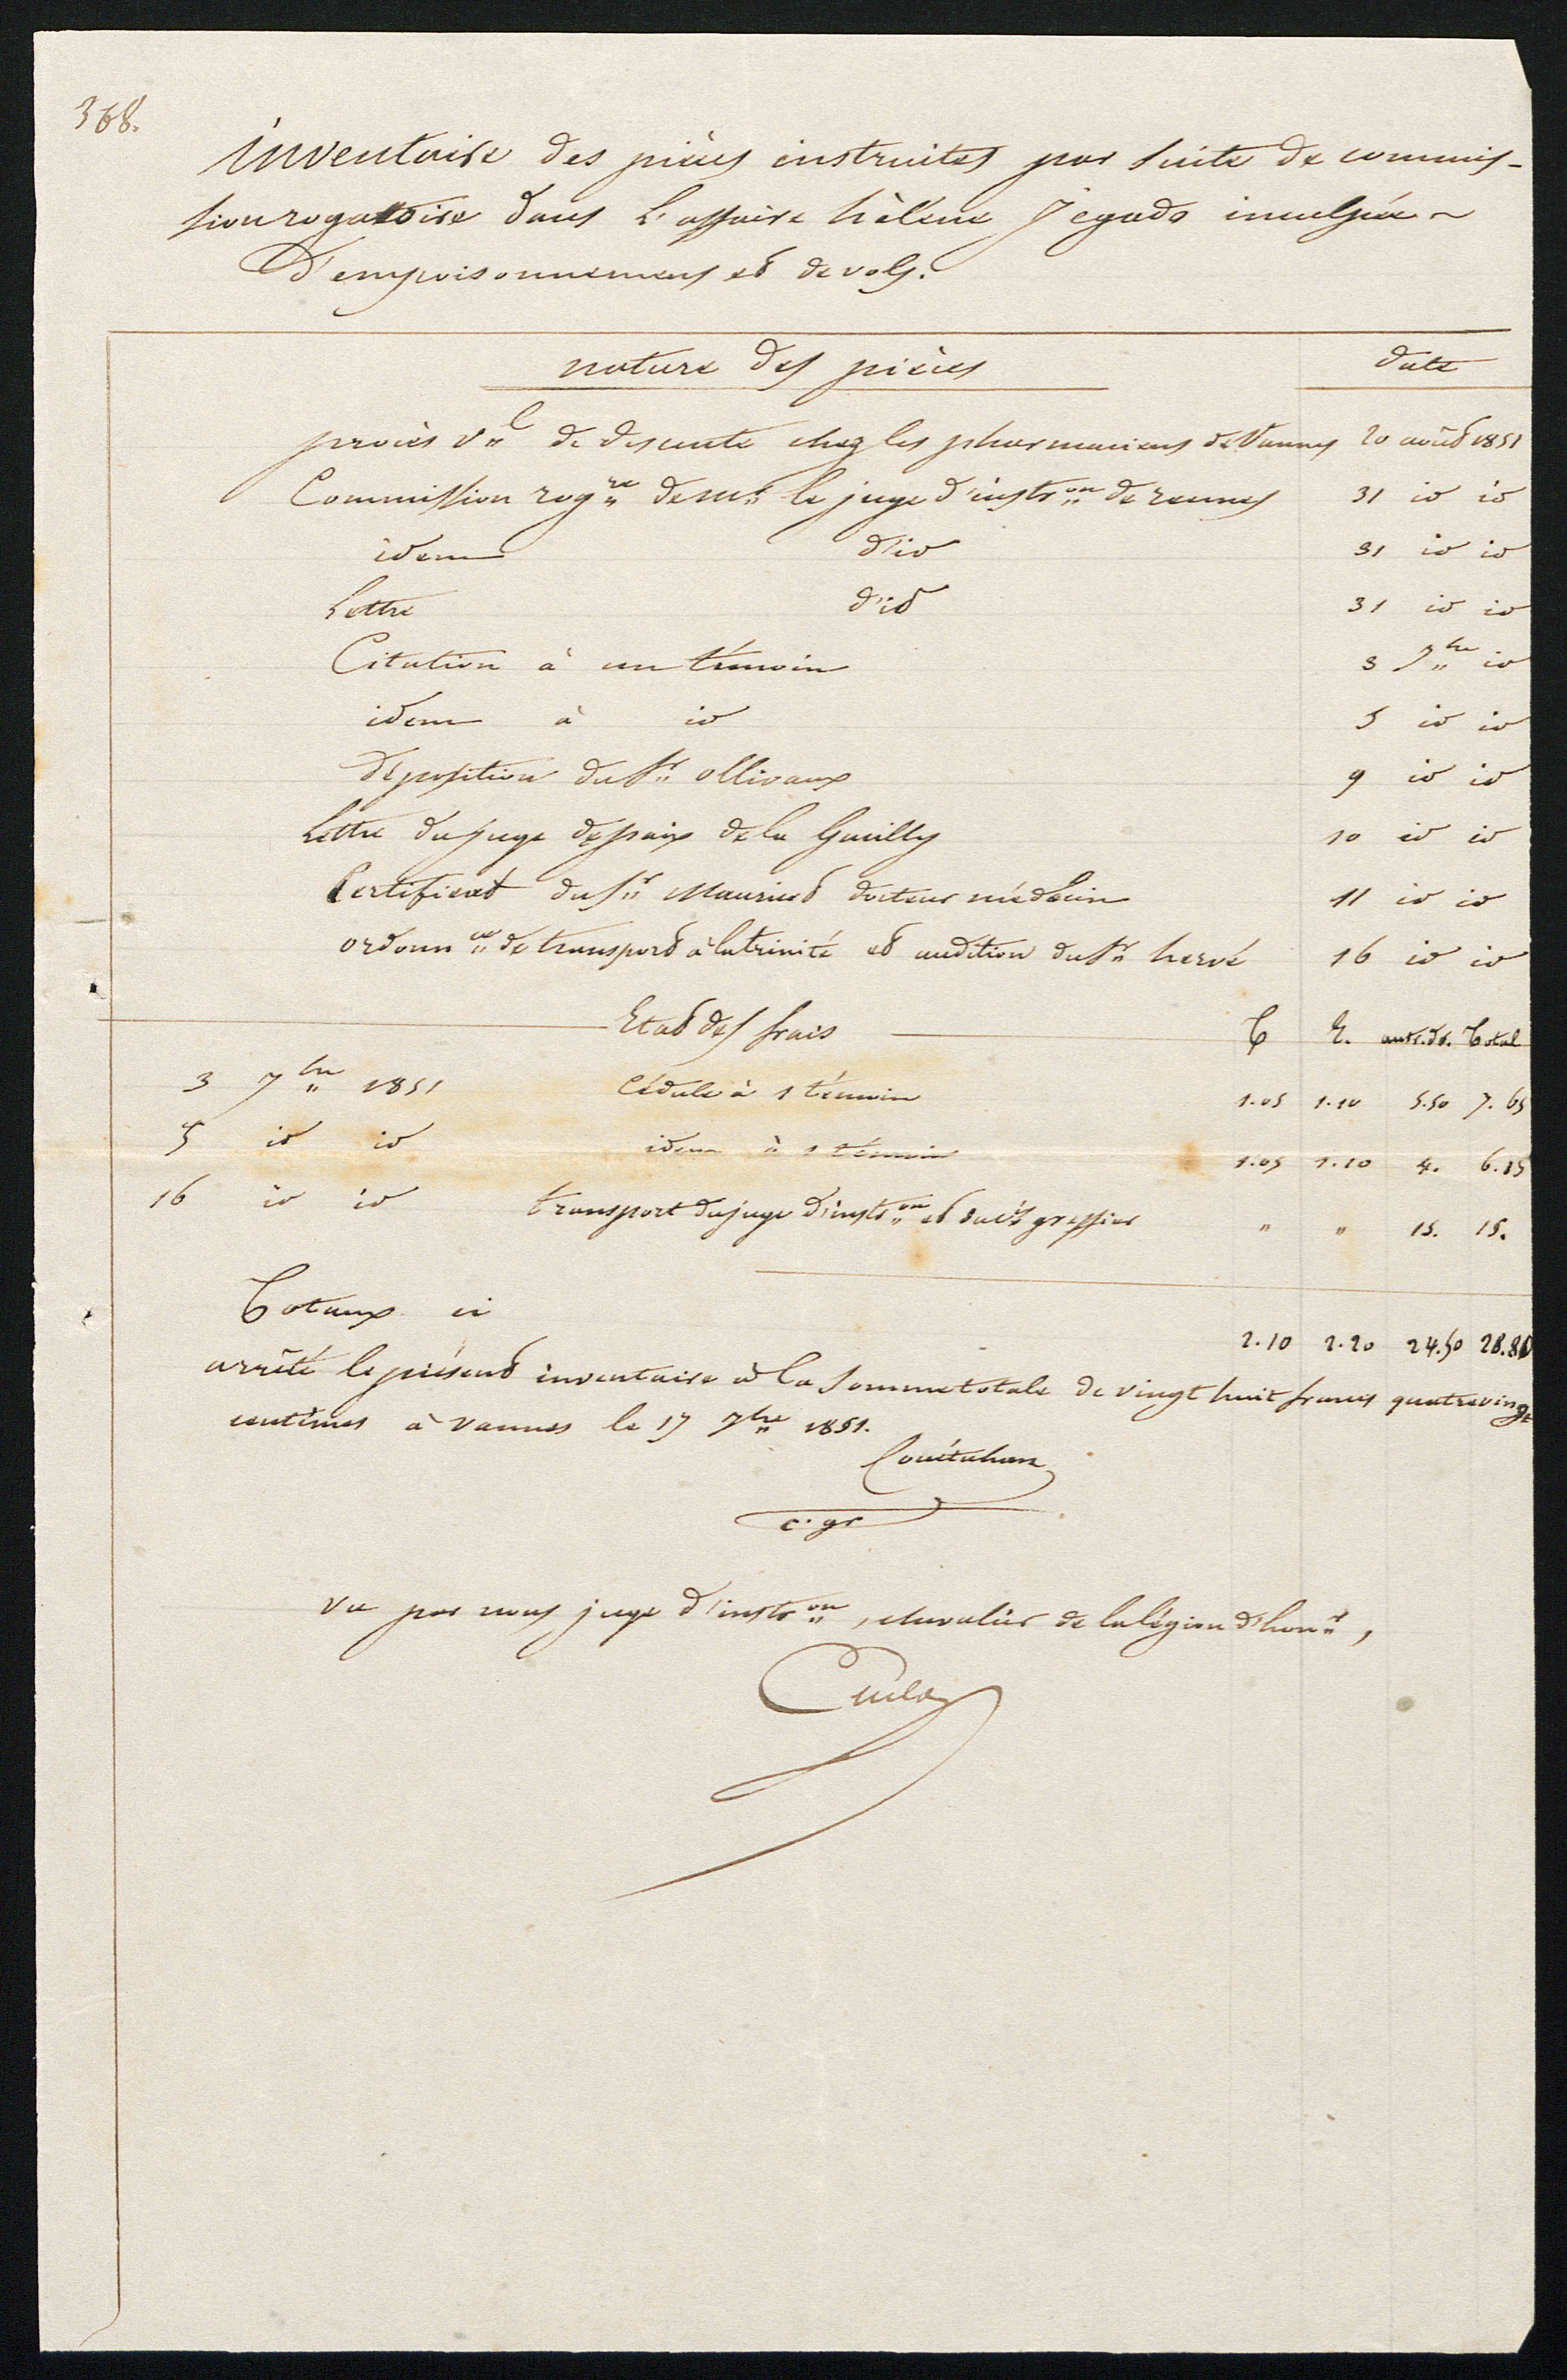 368.
inventaire des pièces instruites par suite de commis-
sion rogatoire dans l'affaire hélène Jégado inculpée
d'empoisonnemens et de vols.
nature des pièces date
procès v.l de descente chez les pharmaciens de Vannes 20 août 1851
Commission rog.re de m.r le juge d'instr.on de rennes 31 id id
idem d'id 31 id id
Lettre d'id 31 id id
Citation à un témoin 3 7bre id
idem à id 5 id id
déposition du Sr ollivaux 9 id id
Lettre du juge de paix de la Gacilly 10 id id
Certificat du Sr Mauricet docteur médecin 11 id id
ordonn.ce de transport à la trinité et audition du Sr hervé 16 id id
Etat des frais T E. aut. dr. Total
3 7bre 1851 Cédule à 1 témoin 1.05 1.10 5.50 7.65
5 id id idem à 1 témoin 1.05 1.10 4. 6.15
16 id id transport du juge d'instr.on et du c.s greffier " " 15. 15.
Totaux ci 2.10 2.20 24.50 28.80
arrêté le présent inventaire à la somme totale de vingt huit francs quatrevingt
centimes à vannes le 17 7bre 1851.
c. gr
vu par nous juge d'instr.on, chevalier de la légion d'hon.r,